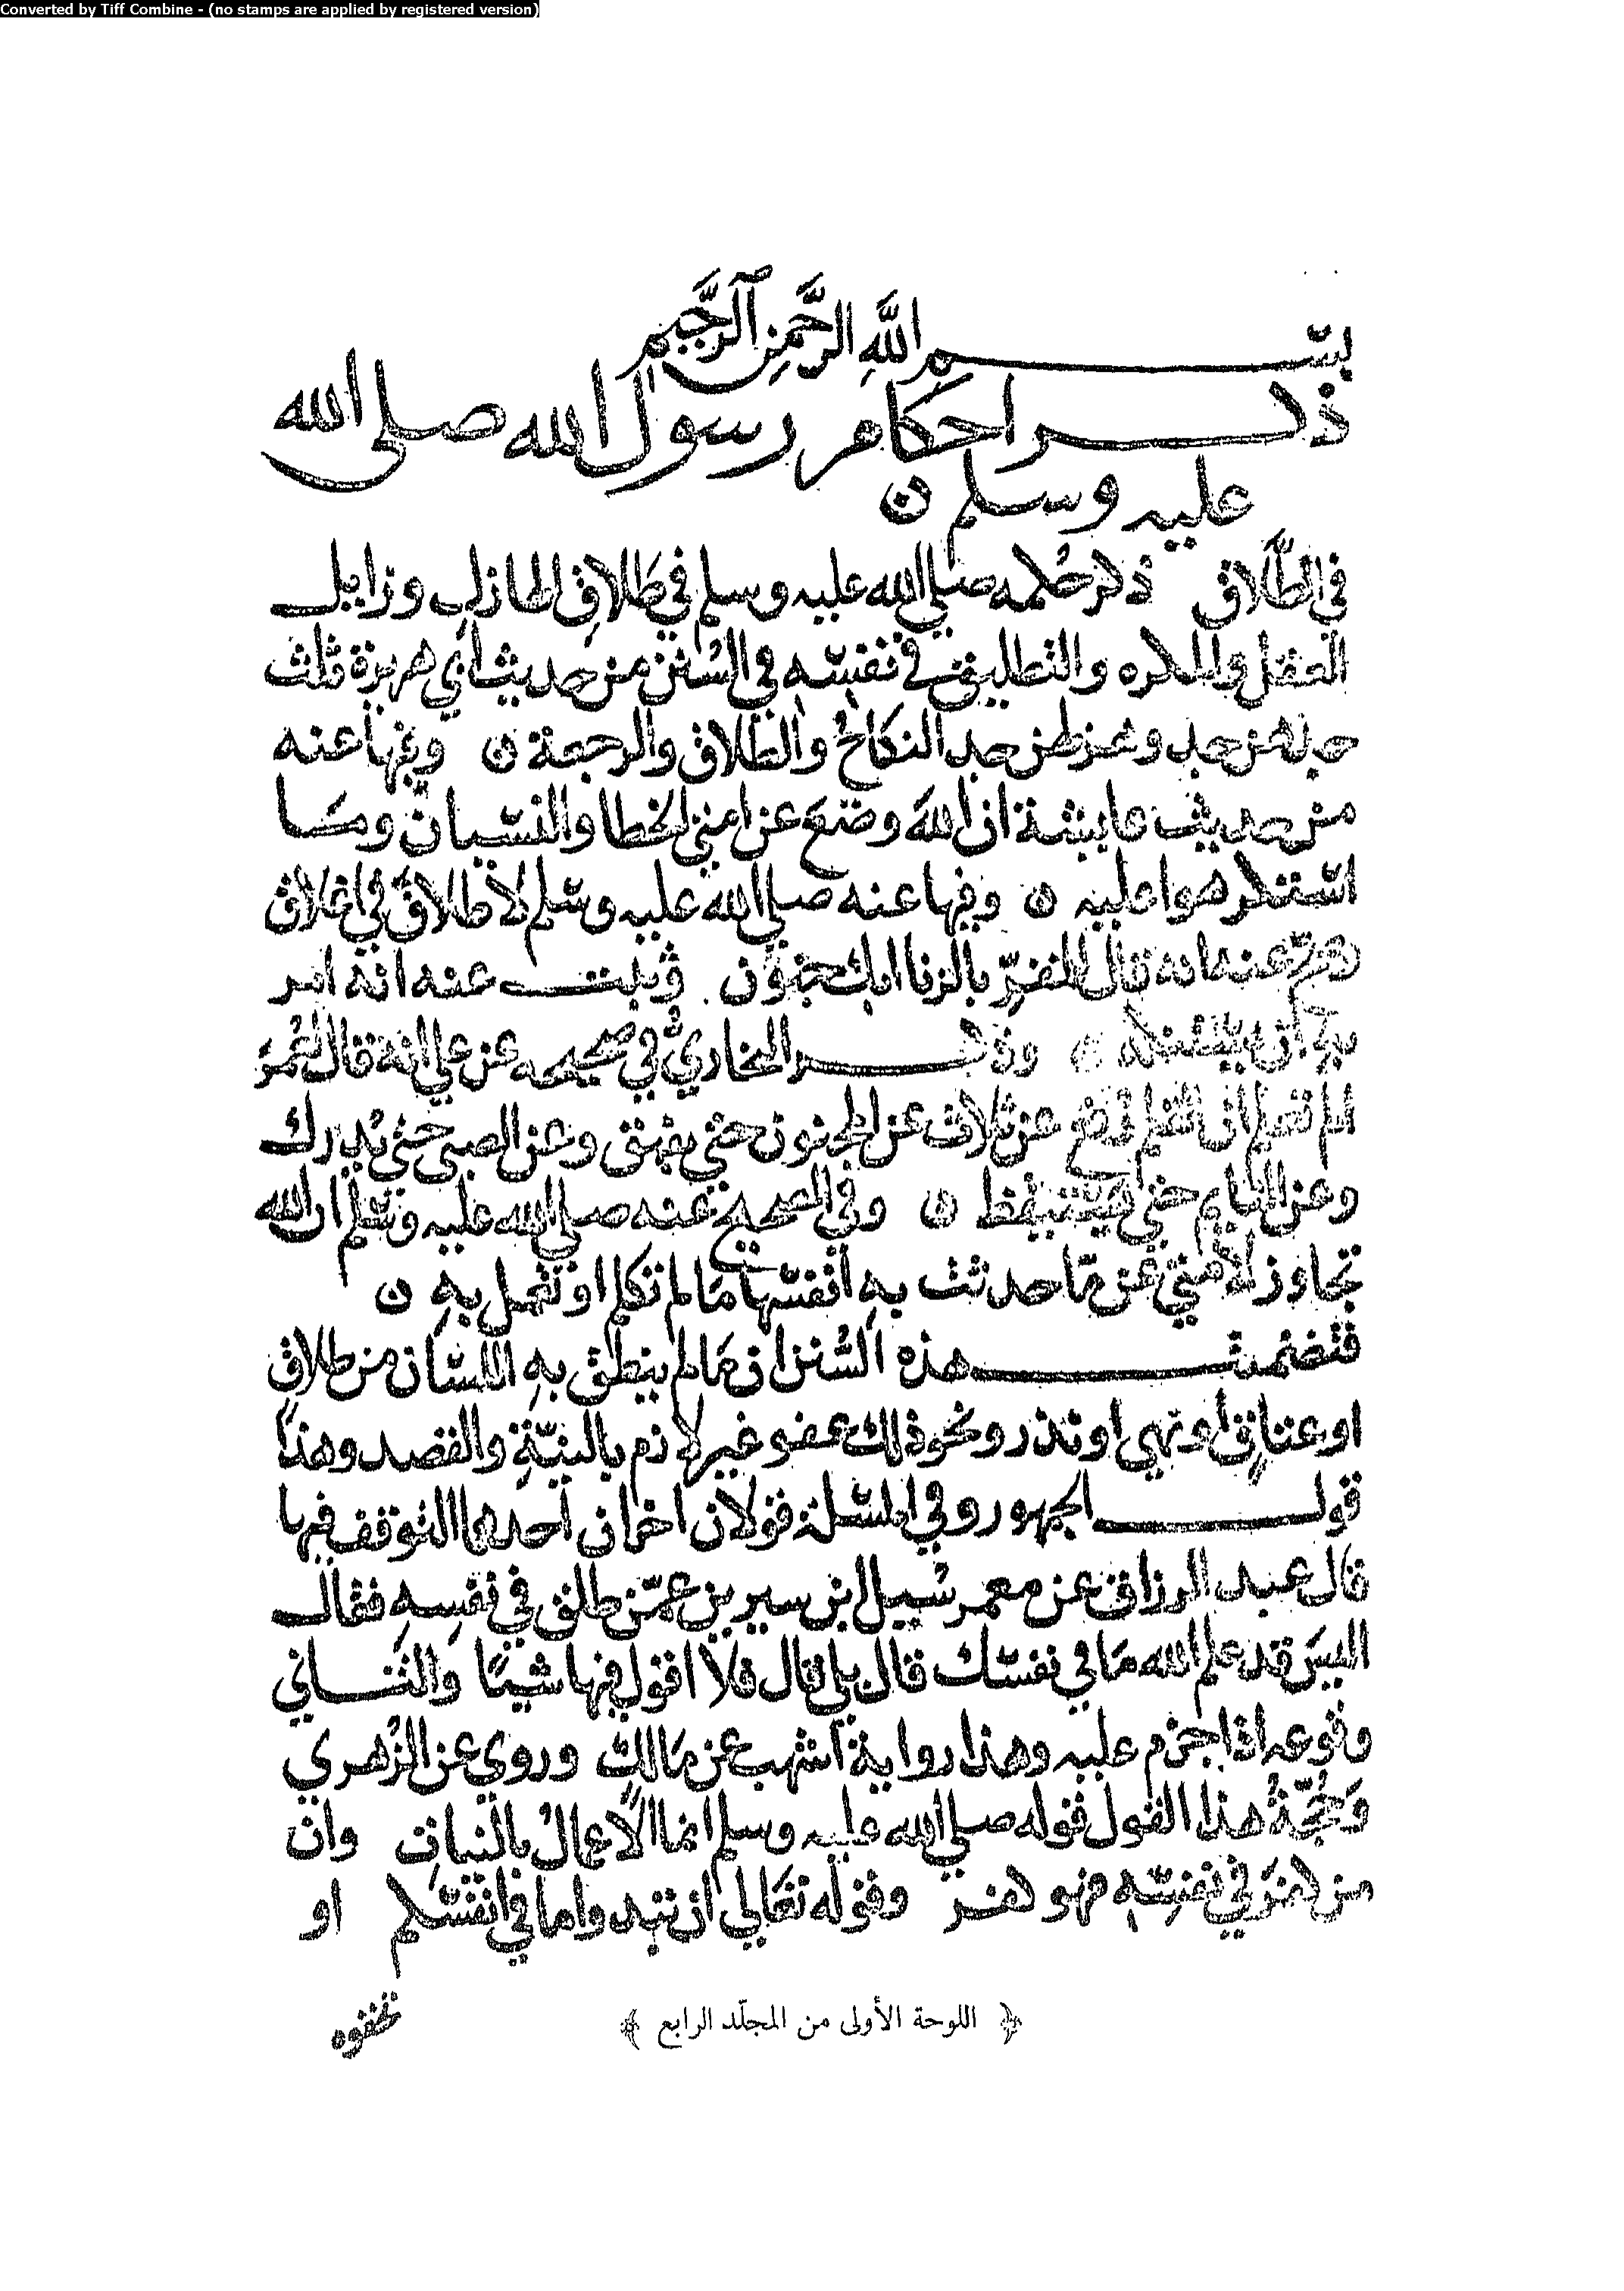 Converted by Tiff Combine - (no stamps are applied by registered version)
بسم الله الرَّحْمنِ الرَّحِيم
ذكر احكام رسول الله صلى الله
عليه وسلم ن
في الطَّلاق ذكر حُكمه صلي الله عليه وسلم في طَلاقِ الهازلِ وزايل
العقل والمكره والتطليق في نفسه في السُنن من حديث ابي هريرة ثلث
جدهن جد وهزلهن جد النكاحُ والطلاق والرجعة ن وفيها عنه
من حديث عايشة ان اللهَ وضعَ عن امتي الخطا والنسيان وما
استكرهوا عليه ن وفيها عنه صلي الله عليه وسلم لا طلاقَ في اغلاق
وصح عنه انه قال للمقرِّ بالزنا ابك جنون وثبت عنه انه امر
به ان يستنكه ن وذكر البخاريُّ في صحيحه عن علي انه قال لعُمر
الم تعلم ان القلم رفع عن ثلاث عن المجنون حتي يفيق وعن الصبي حتي يُدرك
وعن النايم حتي يستيقظ ن وفي الصحيح عنه صلي الله عليه وسلم ان الله
تجاوز لأمتي عن ما حدثت به أنفسها مَا لم تكلم او تعمل بهِ ن
فتضمنت هذه السُنن ان مَا لم ينطق بهِ اللسان من طلاقٍ
او عتاقٍ أو يمين او نذر ونحو ذلك عفو غير لازم بالنيّةِ والقصد وهذا
قول الجمهور وفي المسلة قولان اخران أحدهما التوقف فيها
قال عبد الرزاق عن معمر سُيل ابن سيرين عمّن طلق في نفسِهِ فقال
اليسَ قد علم الله مَا في نفسك قال بلي قال فلا اقول فيها شيئًا والثاني
وقوعه اذا جزم عليه وهذا رواية أشهب عن مَالكٍ وروي عن الزُهري
وَحُجّةُ هذا القول قوله صلي الله عليه وسلم انما الأعمالُ بالنياتِ وان
من كفرَ في نفسِهِ فهو كفر وقوله تعَالي ان تبدوا ما في انفسكم او
تخفوه
﴿ اللوحة الأولى من المجلّد الرابع ﴾